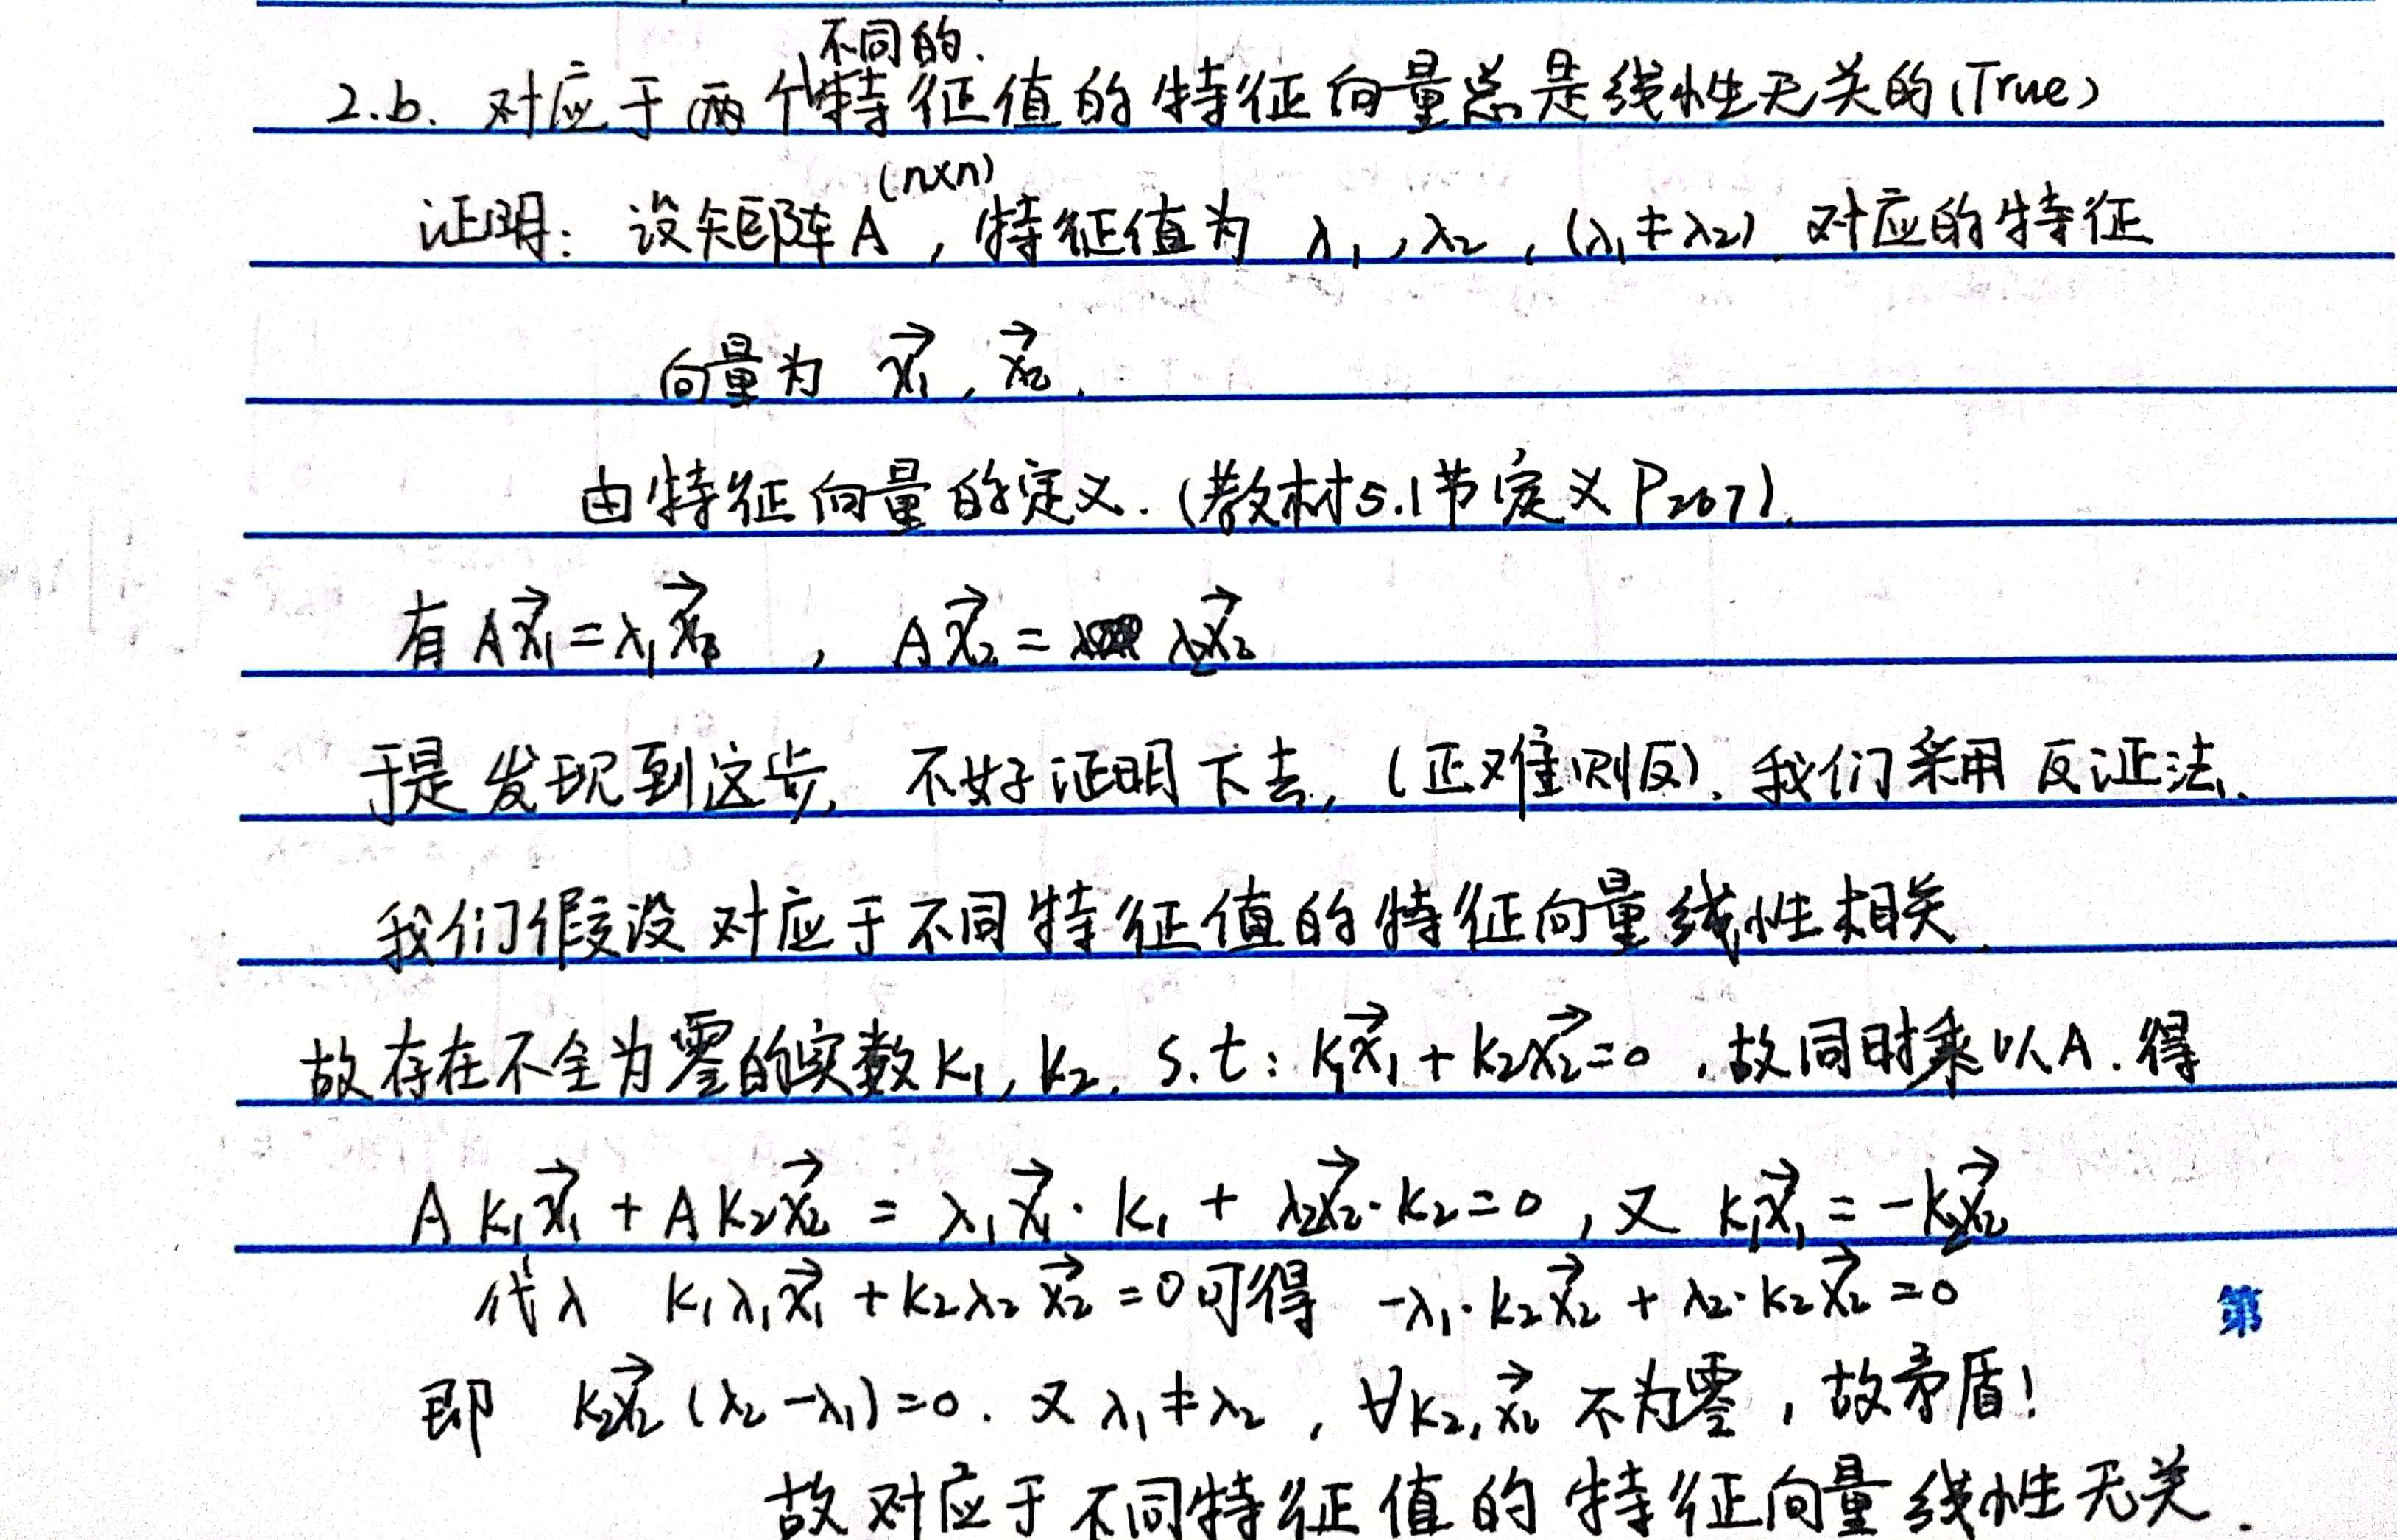 不同的.
2.b. 对应于两个特征值的特征向量总是线性无关的(True)
(n×n)
证明: 设矩阵A , 特征值为 λ₁, λ₂ , (λ₁≠λ₂) , 对应的特征
向量为 x₁→, x₂→.
由特征向量的定义. (教材5.1节定义 P267).
有 Ax₁→=λ₁x₁→ , Ax₂→ = λ₂x₂→
于是发现到这步, 不好证明下去, (正难则反), 我们采用反证法.
我们假设对应于不同特征值的特征向量线性相关.
故存在不全为零的实数 k₁, k₂, s.t: k₁x₁→ + k₂x₂→=0 , 故同时乘以A. 得
A k₁x₁→ + A k₂x₂→ = λ₁x₁→·k₁ + λ₂x₂→·k₂=0 , 又 k₁x₁→ = -k₂x₂→
代入 k₁λ₁x₁→ + k₂λ₂x₂→ =0可得 -λ₁·k₂x₂→ + λ₂·k₂x₂→ =0
第
即 k₂x₂→ (λ₂-λ₁)=0. 又 λ₁≠λ₂ , ∀k₂, x₂→ 不为零 , 故矛盾!
故对应于不同特征值的特征向量线性无关.